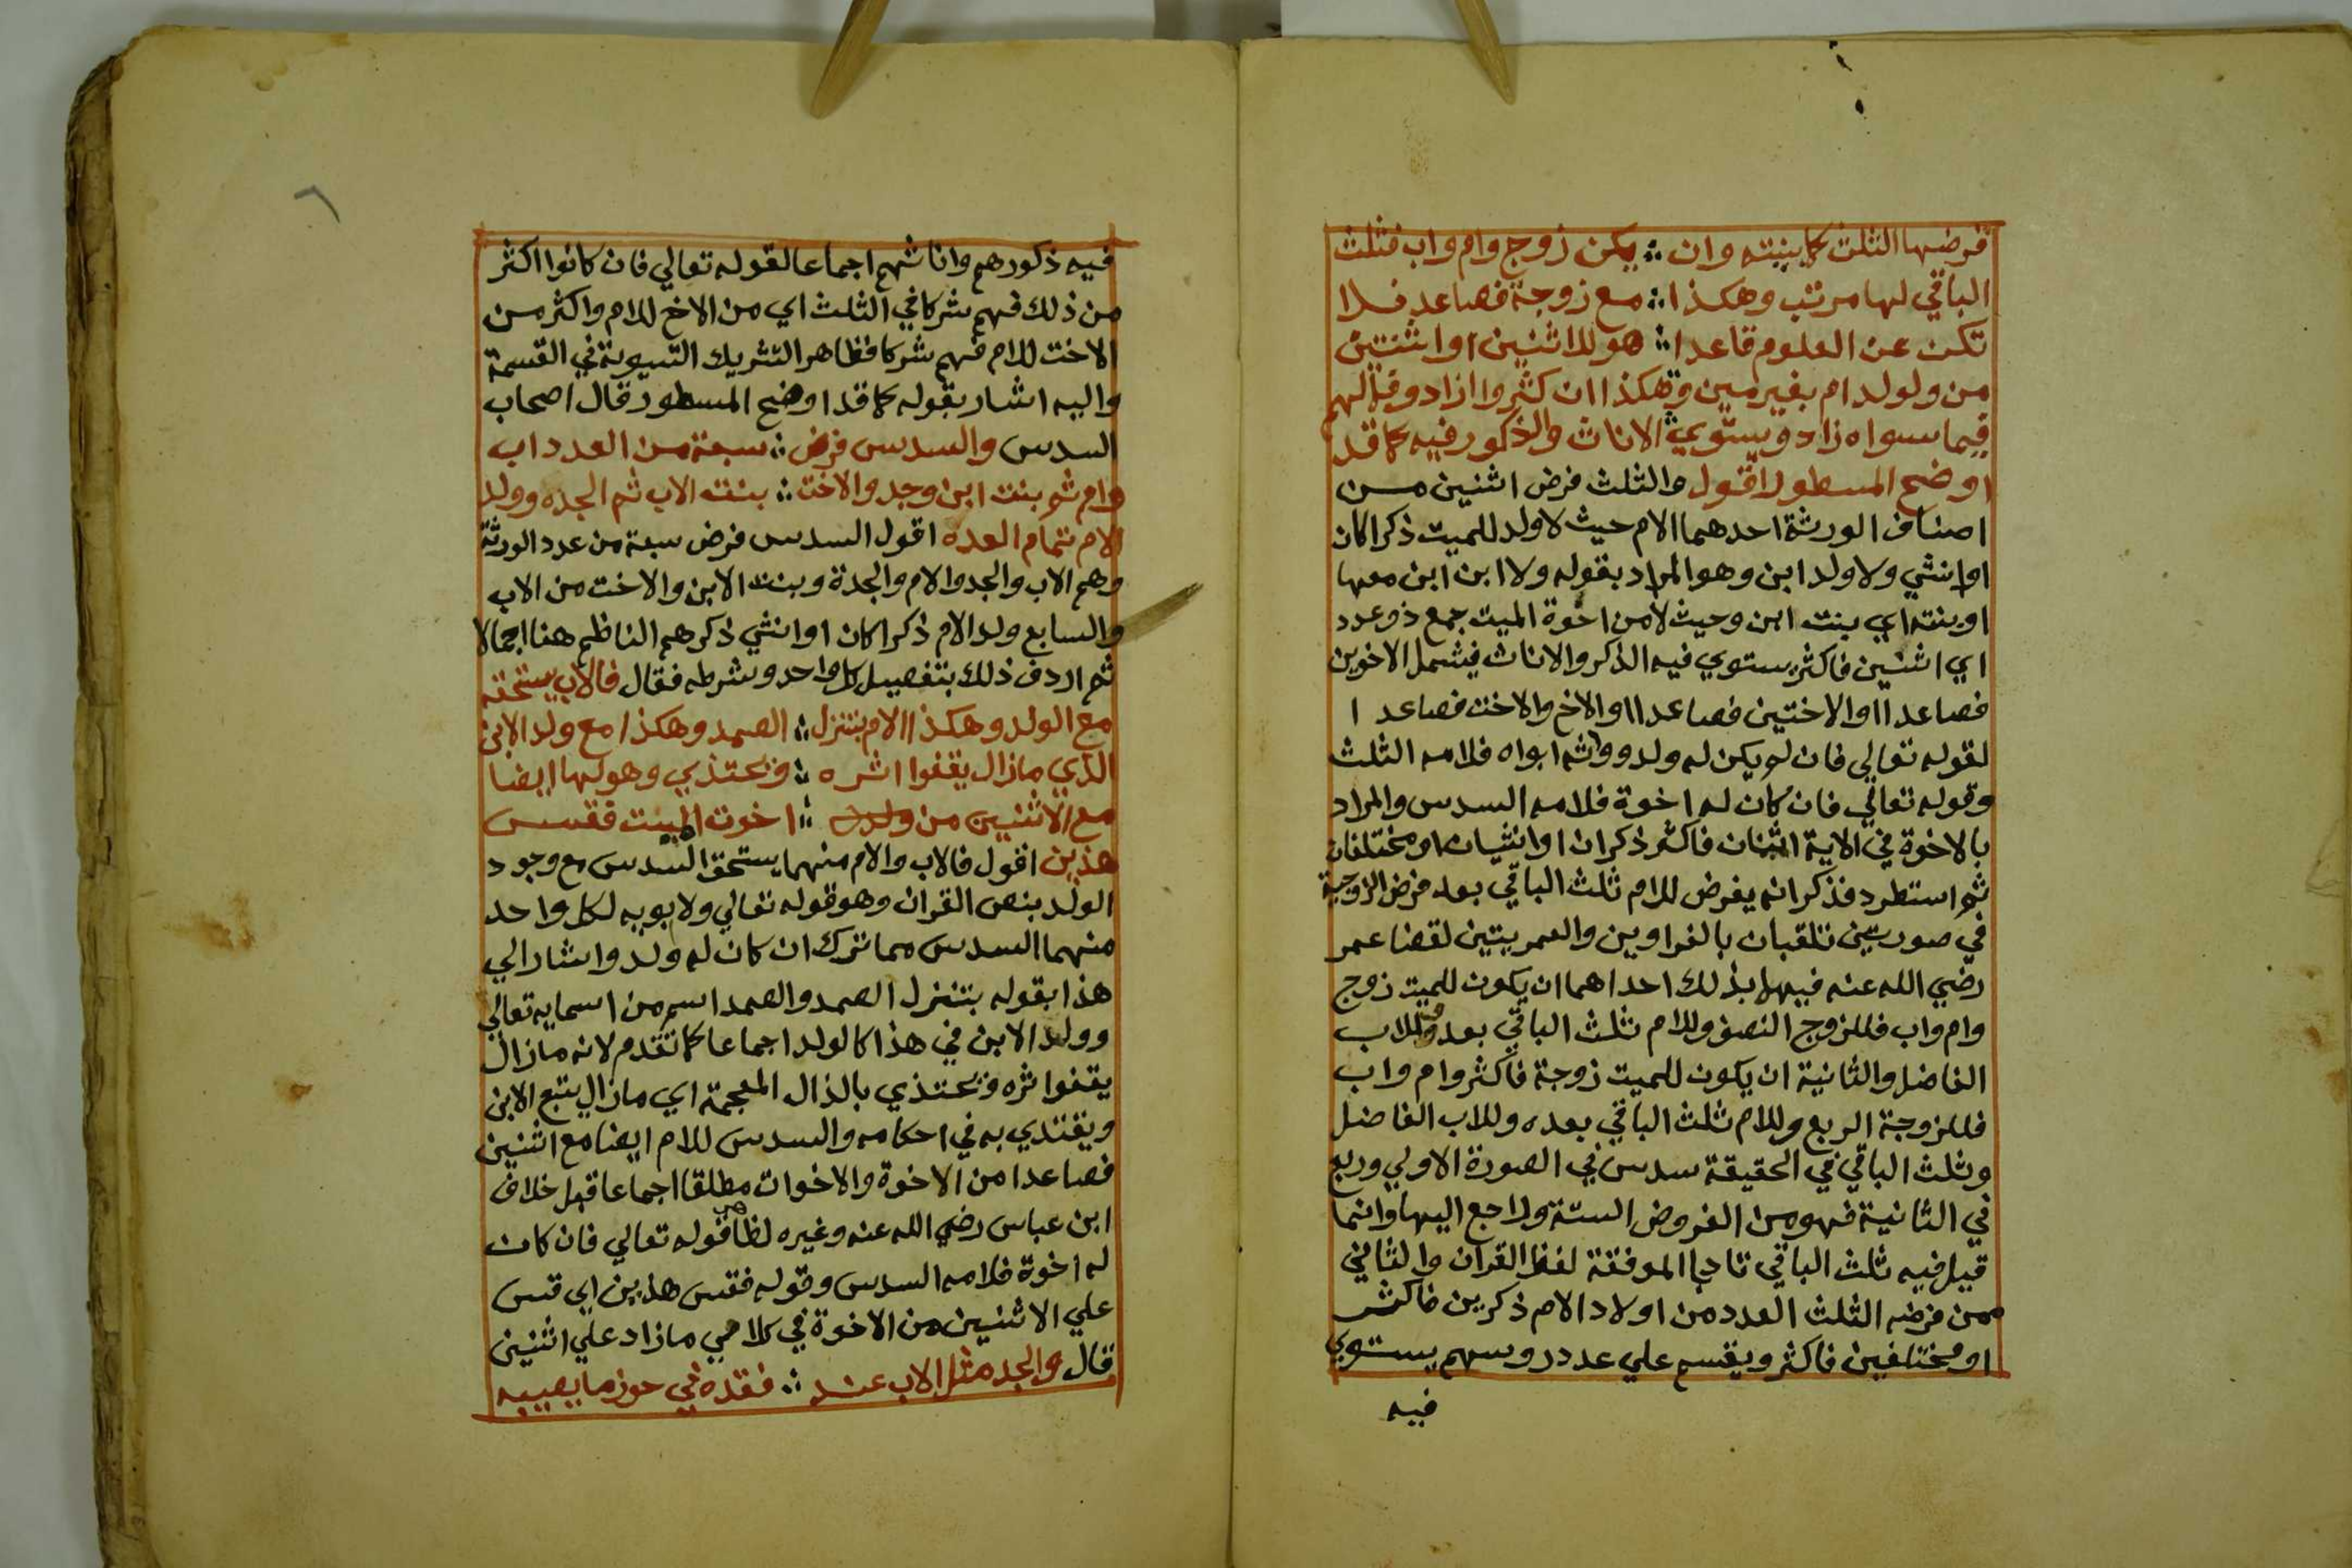 فرضها الثلث كما بينته وان ∴ يكن زوج وام واب فثلث
الباقي لها مرتب وهكذا ∴ مع زوجة فصاعد فلا
تكن عن العلوم قاعدا ∴ هو للاثنين او اثنتين
من ولولد ام بغير مين وهكذا ان كثروا ازادو فمالهم
فيما سواه زاد ويستوي الاناث والذكور فيه كما قد
اوضح المسطور اقول والثلث فرض اثنين من
اصناف الورثة احدهما الام حيث لا ولد للميت ذكرا كان
او انثي ولا ولد ابن وهو المراد بقوله ولا ابن ابن معها
او بنته اي بنت ابن وحيث لا من اخوة الميت جمع ذو عدد
اي اثنين فاكثر يستوي فيه الذكر والاناث فيشمل الاخوين
فصاعدا او الاختين فصاعدا او الاخ والاخت فصاعدا
لقوله تعالي فان لم يكن له ولد وورثه ابواه فلامه الثلث
وقوله تعالي فان كان له اخوة فلامه السدس والمراد
بالاخوة في الاية اثنان فاكثر ذكران او انثيان او مختلفان
ثم استطرد فذكر انه يفرض للام ثلث الباقي بعد فرض الزوجية
في صورتين تلقبان بالغراوين والعمريتين لقضا عمر
رضي الله عنه فيهما بذلك احداهما ان يكون للميت زوج
وام واب فللزوج النصف وللام ثلث الباقي بعده وللاب
الفاضل والثانية ان يكون للميت زوجة فاكثر وام واب
فللزوجة الربع وللام ثلث الباقي بعده وللاب الفاضل
وثلث الباقي في الحقيقة سدس في الصورة الاولي وربع
في الثانية فهو من الفروض الستة وراجع اليها وانما
قيل فيه ثلث الباقي تادبا لموفقة لفظ القران والثاني
ممن فرضه الثلث العدد من اولاد الام ذكرين فاكثر
او مختلفين فاكثر ويقسم علي عدد روسهم يستوي
فيه
٦
فيه ذكورهم واناثهم اجماعا لقوله تعالي فان كانوا اكثر
من ذلك فهم شركا في الثلث اي من الاخ للام واكثر من
الاخت للام فهم شركا فظاهر التشريك التسوية في القسمة
واليه اشار بقوله كما قد اوضح المسطور قال اصحاب
السدس والسدس فرض ∴ سبعة من العدد اب
وام ثم بنت ابن وجد والاخت ∴ بنت الاب ثم الجده وولد
الام تمام العده اقول السدس فرض سبعة من عدد الورثة
وهم الاب والجد والام والجدة وبنت الابن والاخت من الاب
والسابع ولد الام ذكرا كان او انثي ذكرهم الناظم هنا اجمالا
ثم اردف ذلك بتفصيل كل واحد وشرطه فقال فالاب يستحقه
مع الولد وهكذا الام بتنزل ∴ الصمد وهكذا مع ولد الابن
الذي مازال يقفوا اثره ∴ ويحتذي وهو لها ايضا
مع الاثنين من ∴ اخوت الميت فقس
هذين اقول فالاب والام منهما يستحق السدس مع وجود
الولد بنص القران وهو قوله تعالي ولابويه لكل واحد
منهما السدس مما ترك ان كان له ولد واشار الي
هذا بقوله بتنزل الصمد والصمد اسم من اسمايه تعالي
وولد الابن في هذا كالولد اجماعا كما تقدم لانه مازال
يقفوا ثره ويحتذي بالذال المعجمة اي مازال يتبع الابن
ويقتدي به في احكامه والسدس للام ايضا مع اثنين
فصاعدا من الاخوة والاخوات مطلقا اجماعا قبل خلاف
ابن عباس رضي الله عنه وغيره لظاهر قوله تعالي فان كان
له اخوة فلامه السدس وقوله فقس هذين اي قس
علي الاثنين من الاخوة في كلامي مازاد علي اثنين
قال والجد مثل الاب عند ∴ فقده في حوز ما يصيبه